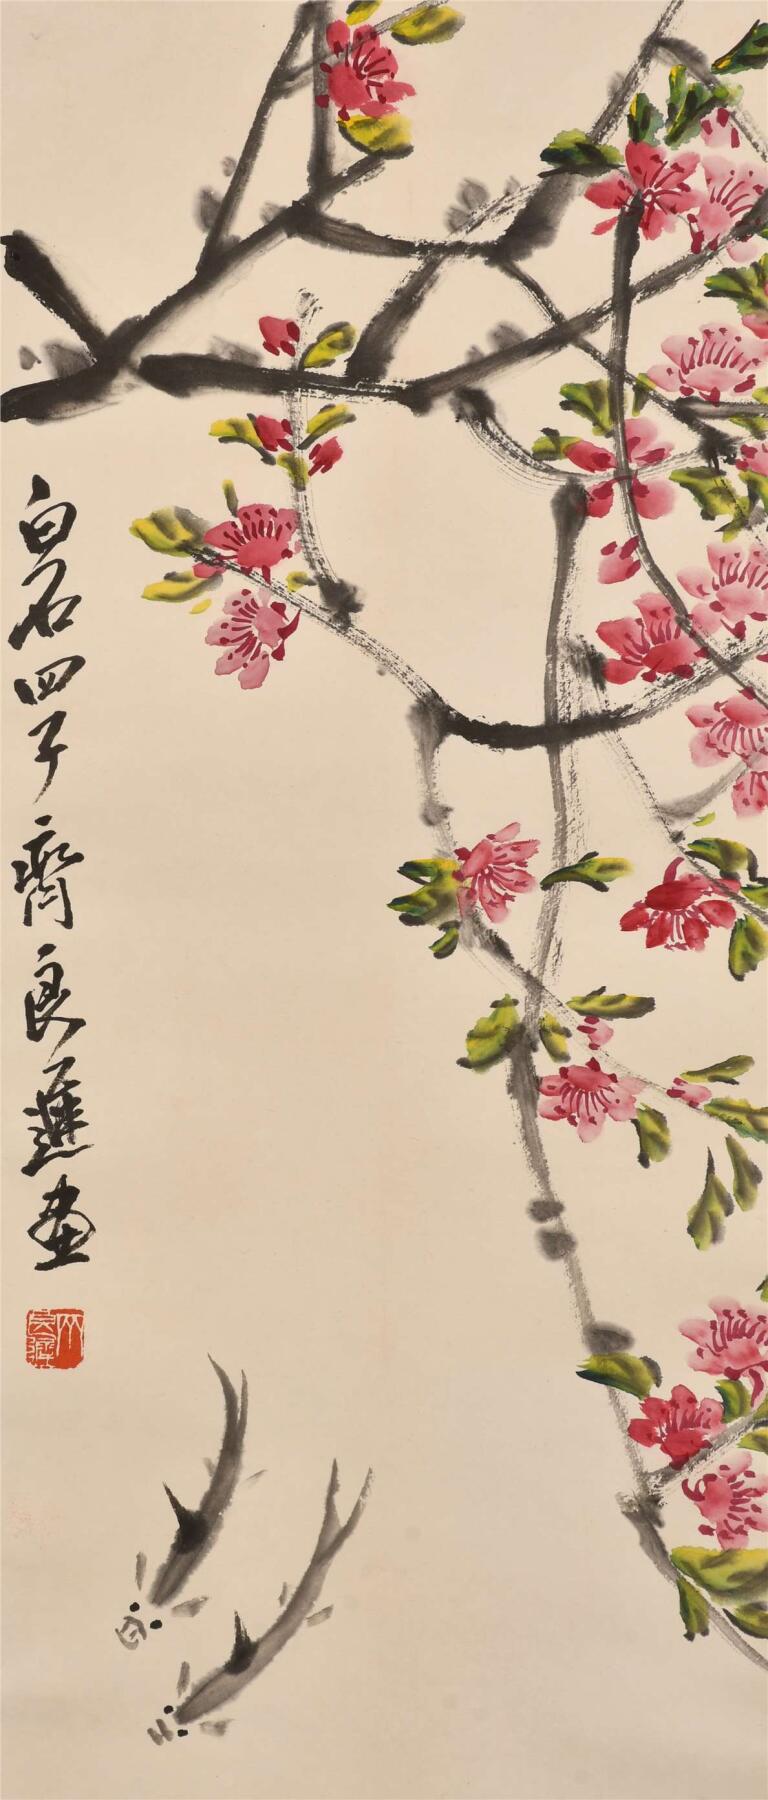 白石四子齊良遲画